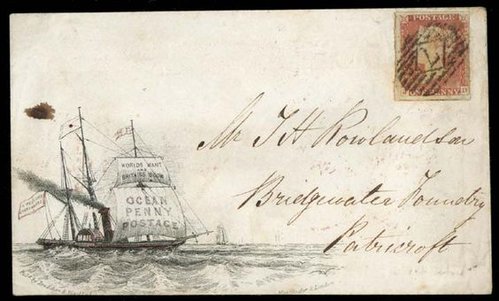 POSTAGE
ONE PENNY
Mr T H Rowlandson
Bridgewater Foundry
Patricroft
WORLDS WANT
AND
BRITAINS BOON
OCEAN
PENNY
POSTAGE
MAIL